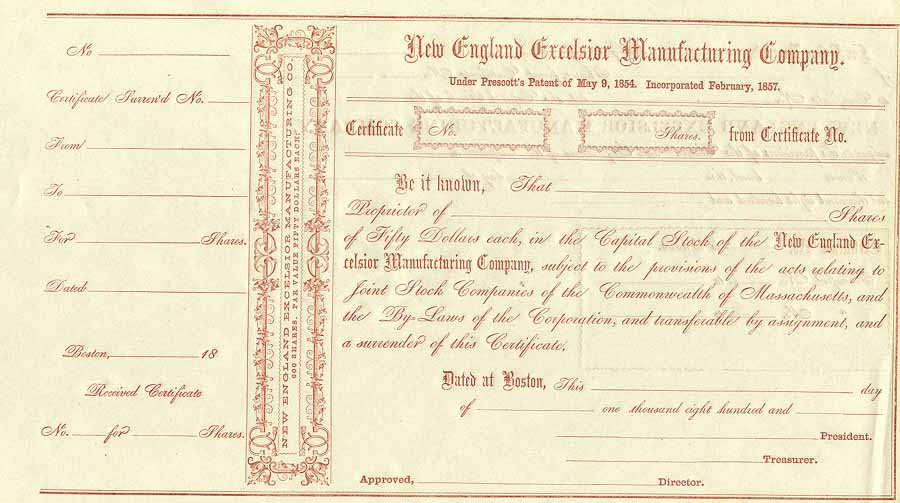 No
Certificate Surren'd No.
From
To
For Shares.
Dated
Boston, 18
Received Certificate
No. for Shares.
NEW ENGLAND EXCELSIOR MANUFACTURING CO
500 SHARES. PAR VALUE FIFTY DOLLARS EACH.
New England Excelsior Manufacturing Company.
Under Prescott's Patent of May 9, 1854. Incorporated February, 1857.
Certificate No. Shares. from Certificate No.
Be it known, That
Proprietor of Shares
of Fifty Dollars each, in the Capital Stock of the New England Ex-
celsior Manufacturing Company, subject to the provisions of the acts relating to
Joint Stock Companies of the Commonwealth of Massachusetts, and
the By-Laws of the Corporation, and transferable by assignment, and
a surrender of this Certificate.
Dated at Boston, This day
of one thousand eight hundred and
President.
Treasurer.
Approved, Director.